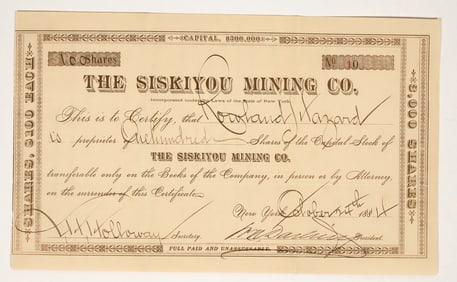 CAPITAL, $300,000
No Shares
No 10
SHARES, $100 EACH
3,000 SHARES
THE SISKIYOU MINING CO.
Incorporated under the Laws of the State of New York
This is to Certify, that Rowland Hazard
is proprietor of One hundred Shares of the Capital Stock of
THE SISKIYOU MINING CO.
transferable only on the Books of the Company, in person or by Attorney,
on the surrender of this Certificate.
New York October 14th
Holloway Secretary. President.
FULL PAID AND UNASSESSABLE.